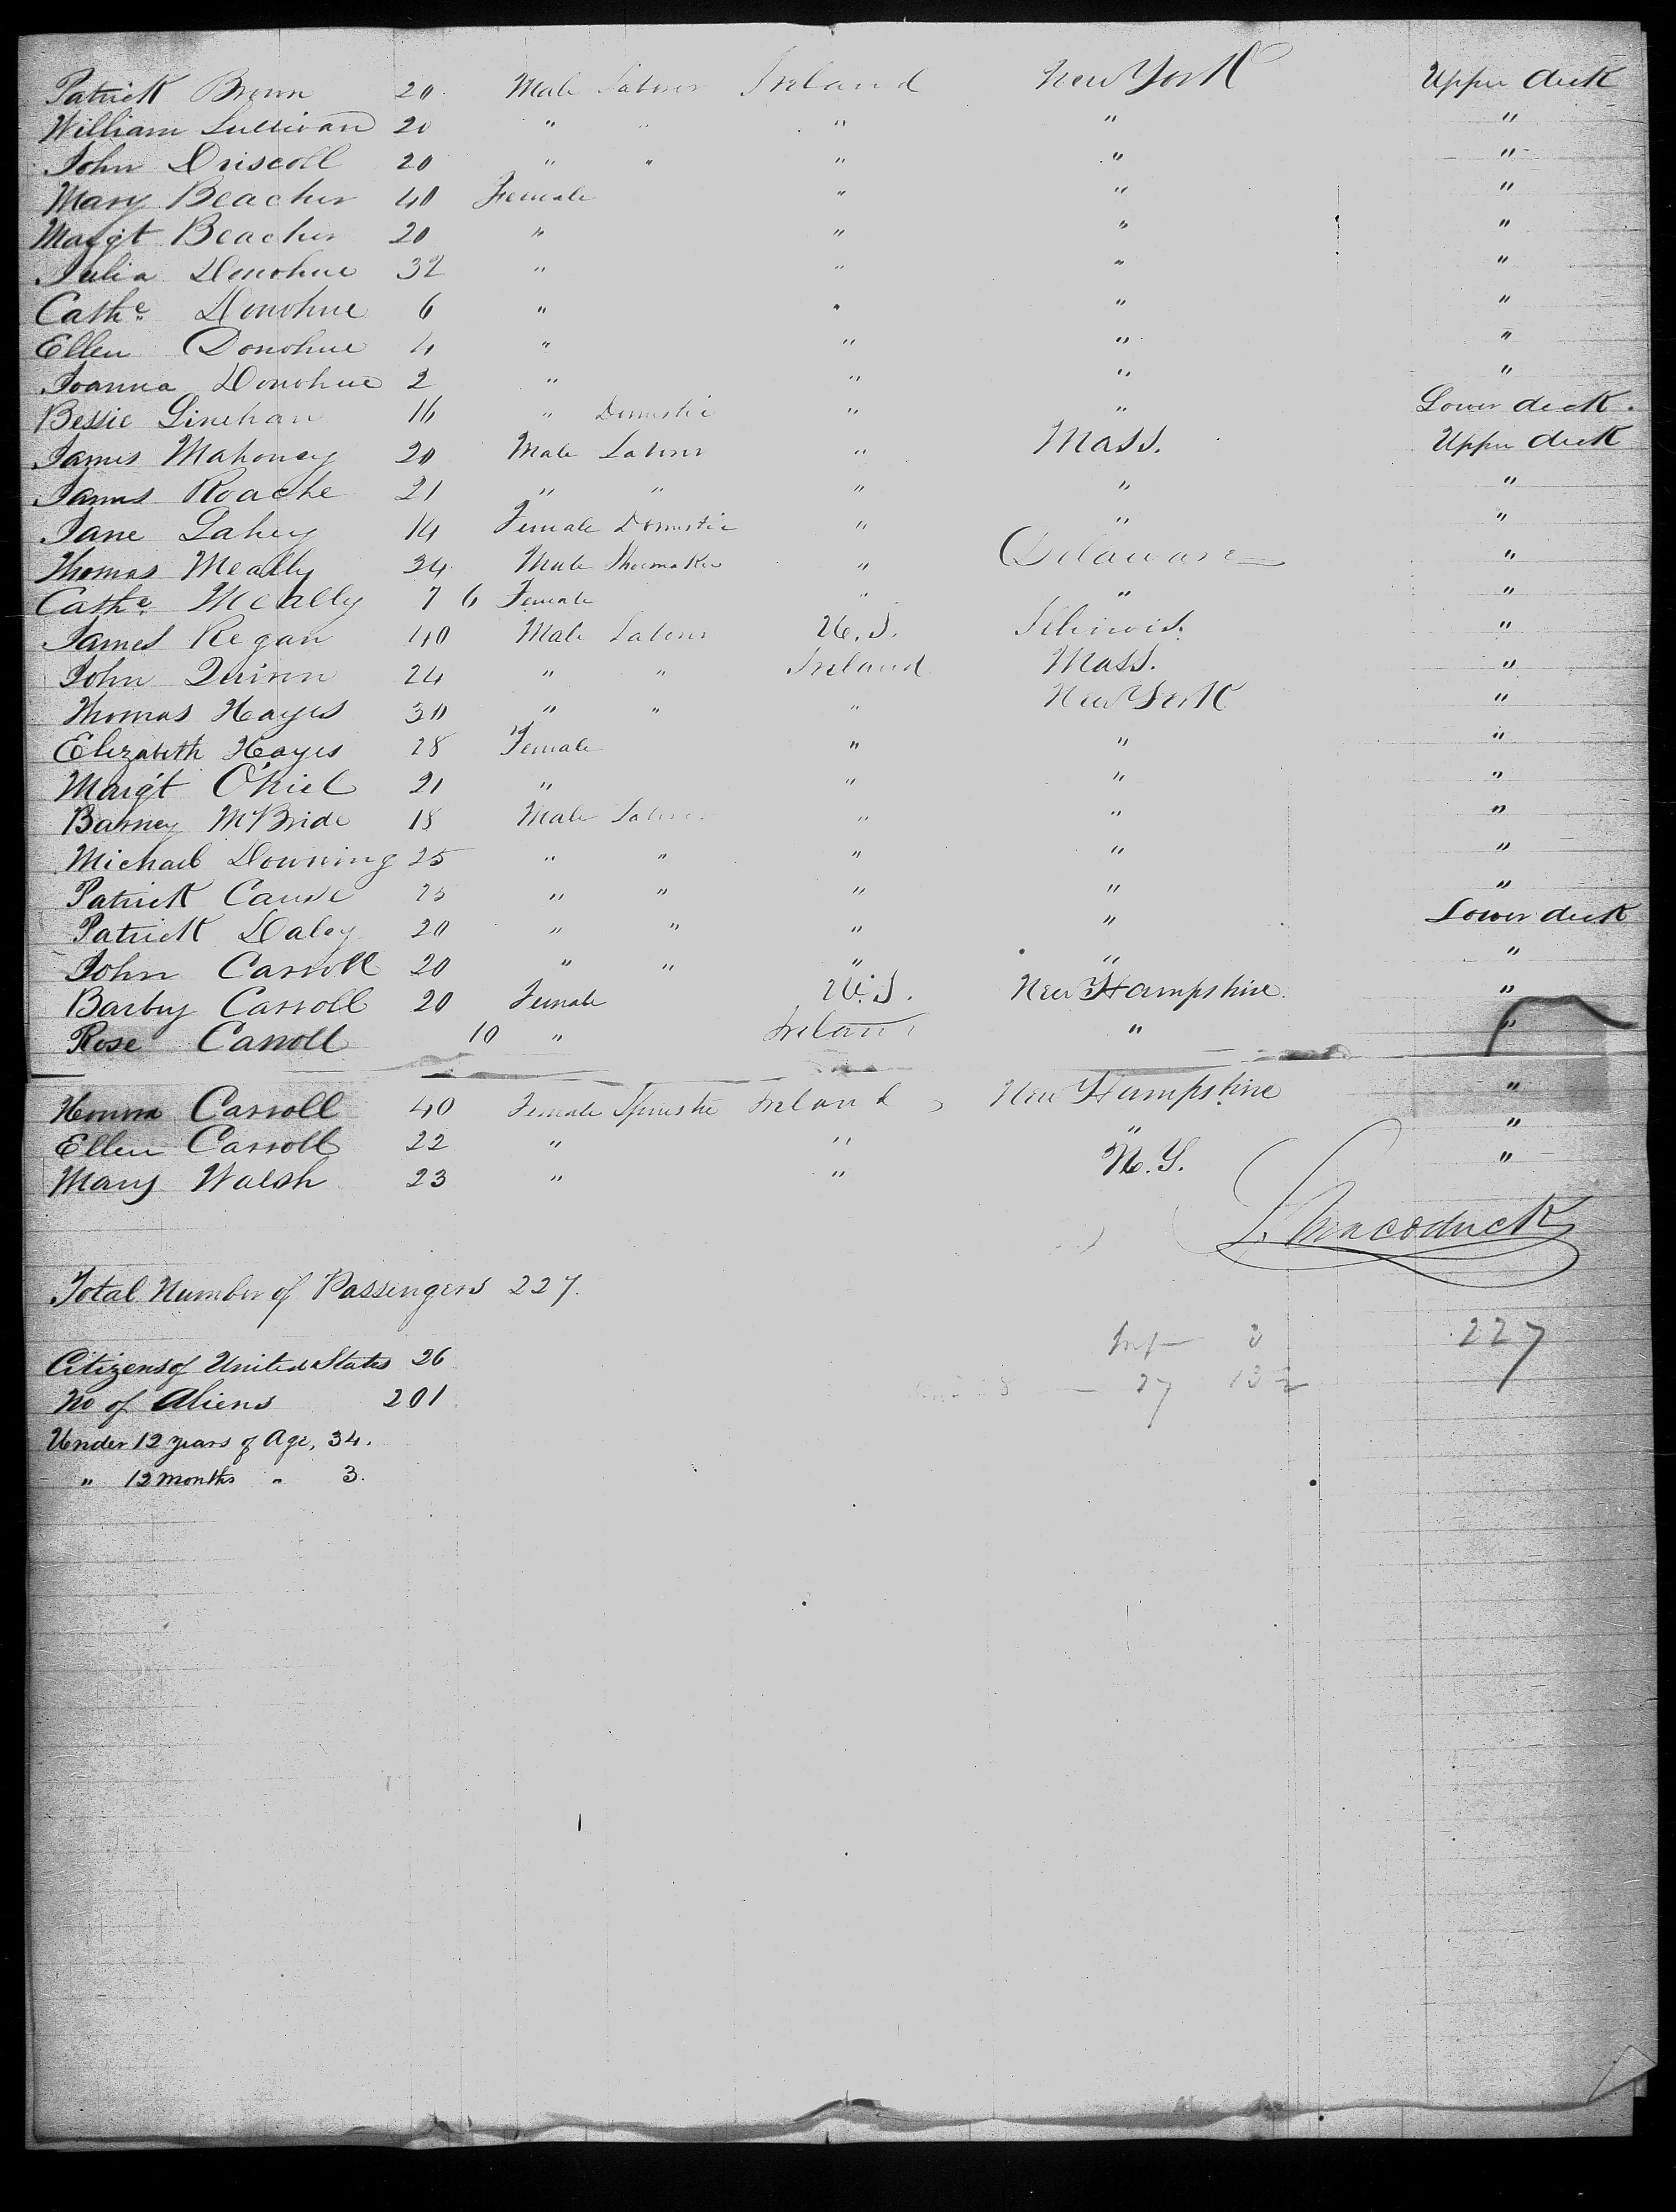 Patrick Brenn 20 Male Laborer Ireland New York Upper deck
William Sullivan 20 " " " " "
John Driscoll 20 " " " " "
Mary Beacher 40 Female " " "
Margt Beacher 20 " " " "
Julia Donohue 32 " " " "
Cathe Donohue 6 " " " "
Ellen Donohue 4 " " " "
Joanna Donohue 2 " " " "
Bessie Linehan 16 " Domestic " " Lower deck.
James Mahoney 20 Male Laborer " Mass. Upper deck
James Roache 21 " " " " "
Jane Lahey 14 Female Domestic " " "
Thomas Meally 34 Male Shoemaker " Delaware "
Cathe Meally 7 6 Female " " "
James Regan 40 Male Laborer U.S. Illinois. "
John Quinn 24 " " Ireland Mass. "
Thomas Hayes 30 " " " New York "
Elizabeth Hayes 28 Female " " "
Margt O'Kiel 21 " " " "
Barney McBride 18 Male Laborer " " "
Michael Downing 25 " " " " "
Patrick Cause 25 " " " " "
Patrick Daley 20 " " " " Lower deck
John Carroll 20 " " " " "
Barby Carroll 20 Female U.S. New Hampshire. "
Rose Carroll 10 " Ireland " "
Honora Carroll 40 Female Spinster Ireland New Hampshire "
Ellen Carroll 22 " " " "
Mary Walsh 23 " " N.Y. "
Total Number of Passengers 227.
227
Citizens of United States 26
No of Aliens 201
27 132
Under 12 years of Age, 34.
" 12 months " 3.